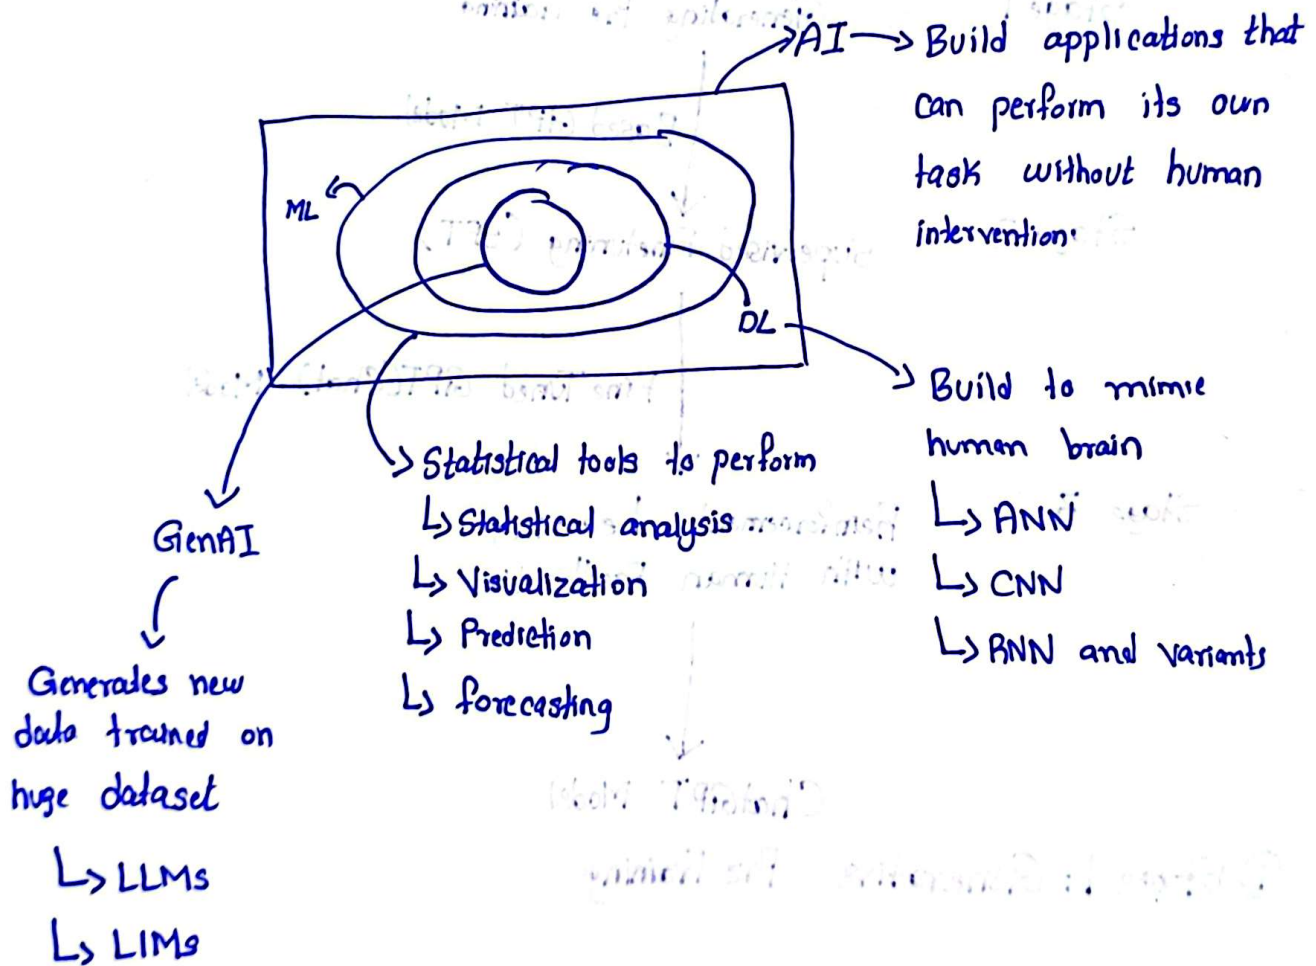 AI → Build applications that
can perform its own
task without human
intervention.
ML
DL
Build to mimic
human brain
↳ ANN
↳ CNN
↳ RNN and variants
Statistical tools to perform
↳ Statistical analysis
↳ Visualization
↳ Prediction
↳ forecasting
GenAI
Generates new
data trained on
huge dataset
↳ LLMs
↳ LIMs